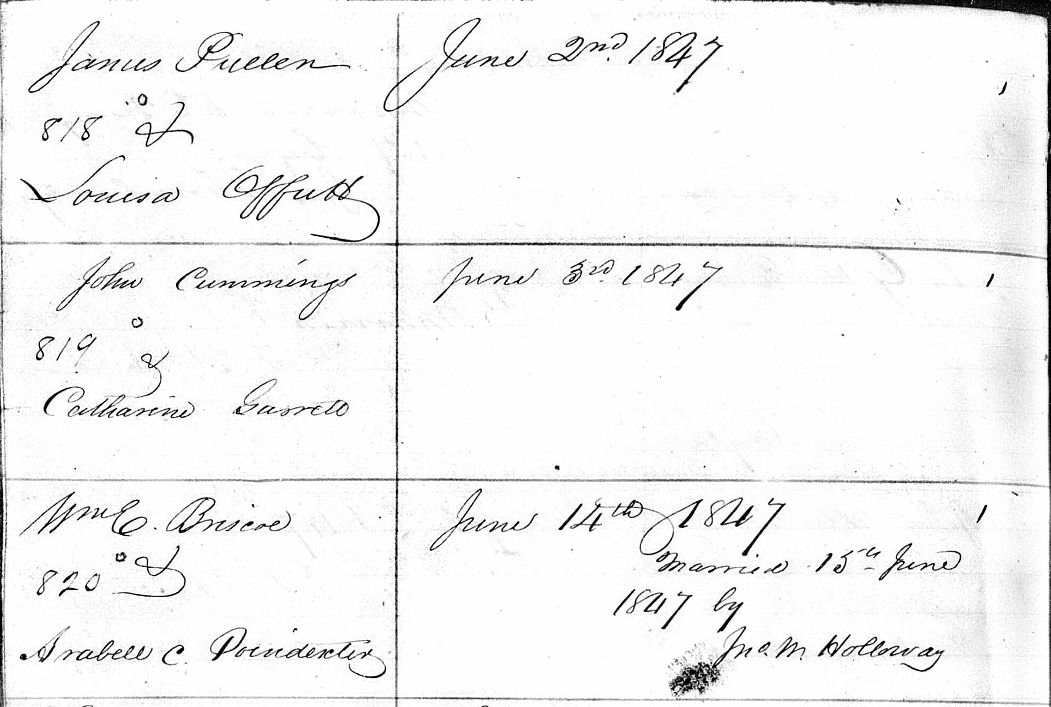 James Pullen
June 2nd. 1847
818 &
Louisa Offutt
John Cummings
June 3rd. 1847
819 &
Catharine Garrett
Wm E. Briscoe
June 14th 1847
820 &
Married 15th June
1847 by
Arabell C. Poindexter
Jno. M. Holloway